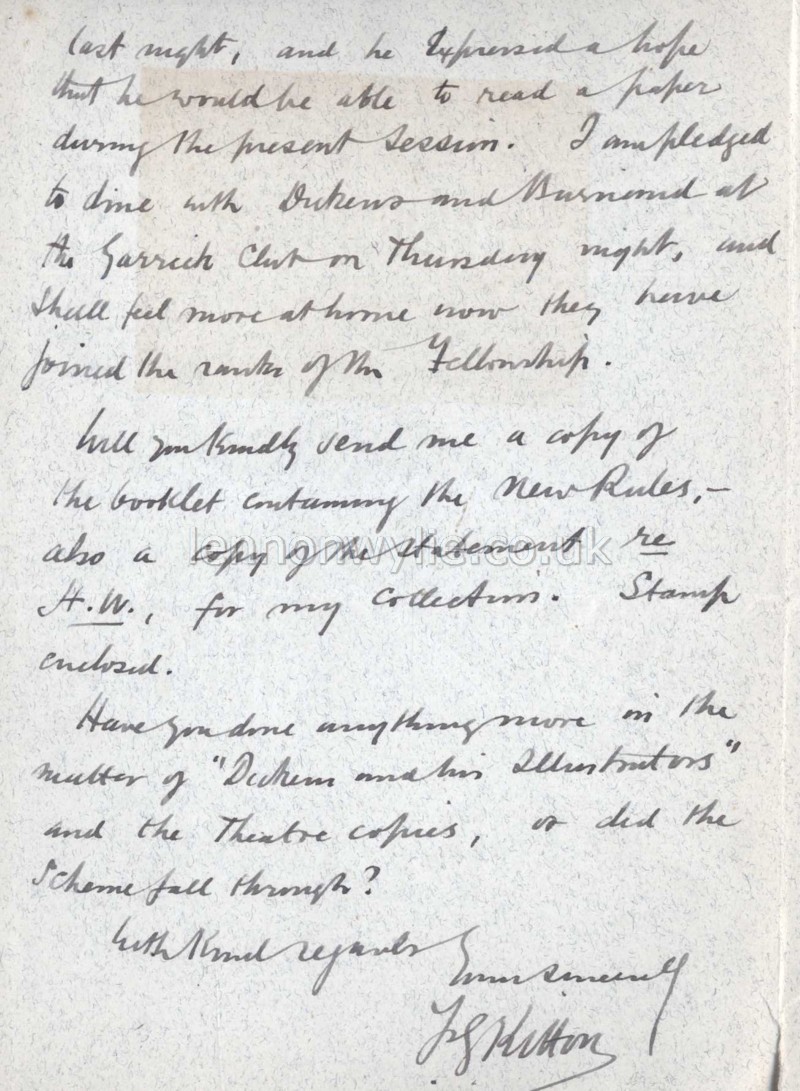 last night, and he expressed a hope
that he would be able to read a paper
during the present Session. I am pledged
to dine with Dickens and Burnand at
the Garrick Club on Thursday night, and
shall feel more at home now they have
joined the ranks of the Fellowship.
Will you kindly send me a copy of
the booklet containing the New Rules,—
also a copy of the statement re
H.W., for my collection. Stamp
enclosed.
Have you done anything more in the
matter of "Dickens and his Illustrators"
and the Theatre copies, or did the
scheme fall through?
With kind regards
Yours sincerely
F G Kitton
lennonwylie.co.uk